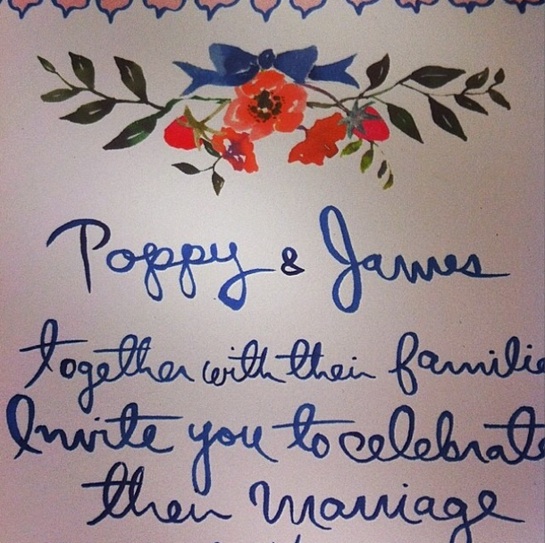 Poppy & James
together with their familie
Invite you to celebrate
their marriage